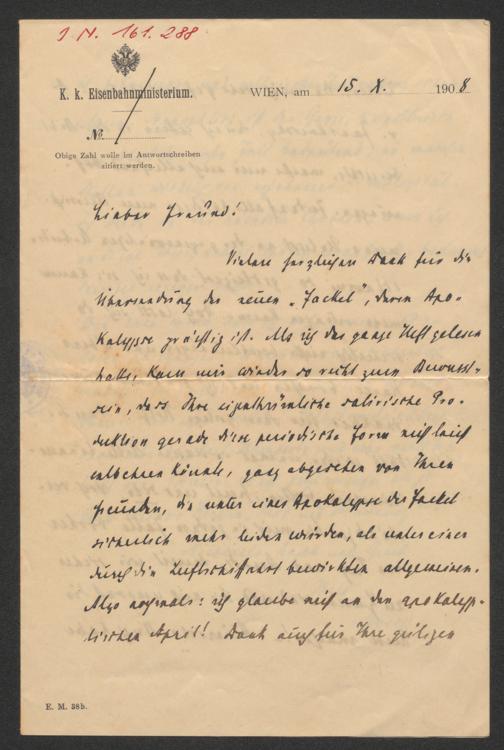 I N. 161.288
K. k. Eisenbahnministerium.
WIEN, am 15. X. 1908
No.
Obige Zahl wolle im Antwortschreiben
zitiert werden.
Lieber Freund!
Vielen herzlichen Dank für die
Übersendung der neuen „Fackel", deren Apo-
kalypse prächtig ist. Als ich das ganze Heft gelesen
hatte, kam mir wieder so recht zum Bewusst-
sein, dass Ihre eigenthümliche satirische Pro-
duktion gerade diese periodische Form nicht leicht
entbehren könnte, ganz abgesehen von Ihren
Freunden, die unter einer Apokalypse der Fackel
sicherlich mehr leiden würden, als unter einer
durch die Luftschiffahrt bewirkten allgemeinen.
Also nochmals: ich glaube nicht an den apokalyp-
tischen April! Dank auch für Ihre gütigen
E. M. 38b.